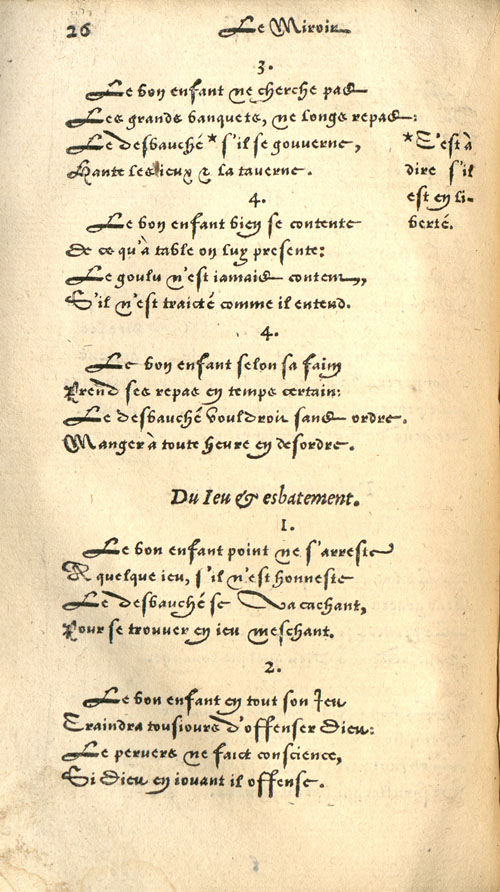 26 Le Miroir
3.
Le bon enfant ne cherche pas
Les grands banquets, ne longs repas:
Le desbauché * s'il se gouverne,
Hante les ieux & la taverne.
* C'est à
dire s'il
est en li-
berté.
4.
Le bon enfant bien se contente
De ce qu'à table on luy presente:
Le goulu n'est iamais content,
S'il n'est traicté comme il entend.
4.
Le bon enfant selon sa faim
Prend ses repas en temps certain:
Le desbauché vouldroit sans ordre.
Manger à toute heure en desordre.
Du Ieu & esbatement.
1.
Le bon enfant point ne s'arreste
A quelque ieu, s'il n'est honneste
Le desbauché se va cachant,
Pour se trouver en ieu meschant.
2.
Le bon enfant en tout son Jeu
Craindra tousiours d'offenser Dieu:
Le pervers ne faict conscience,
Si Dieu en iouant il offense.